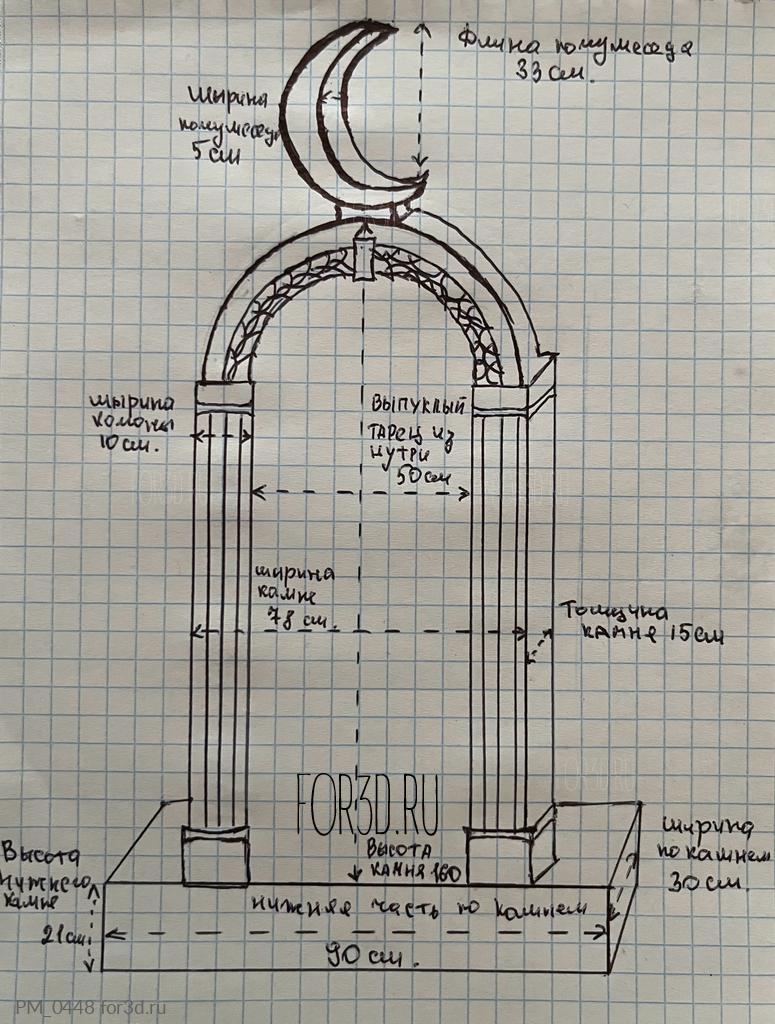 Длина полумесеца
33 см.
шырина
полумесеца
5 см
шырина
колоны
10 см.
выпуклый
тарец из
нутри
50 см
ширина
камне
78 см.
Толщина
камня 15 см
FOR3D.RU
ширина
по камнем
30 см.
Высота
нижнего
камне
21 см.
высота
камня 160
нижняя часть по камнем
90 см.
PM_0448 for3d.ru